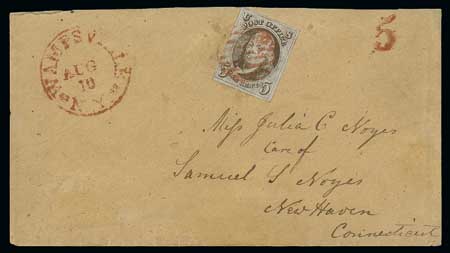 WAMPSVILLE
AUG
10
N.Y.
5
5
POST OFFICE
5
5
5
Miss Julia C Noyes
Care of
Samuel S Noyes
New Haven
Connecticut